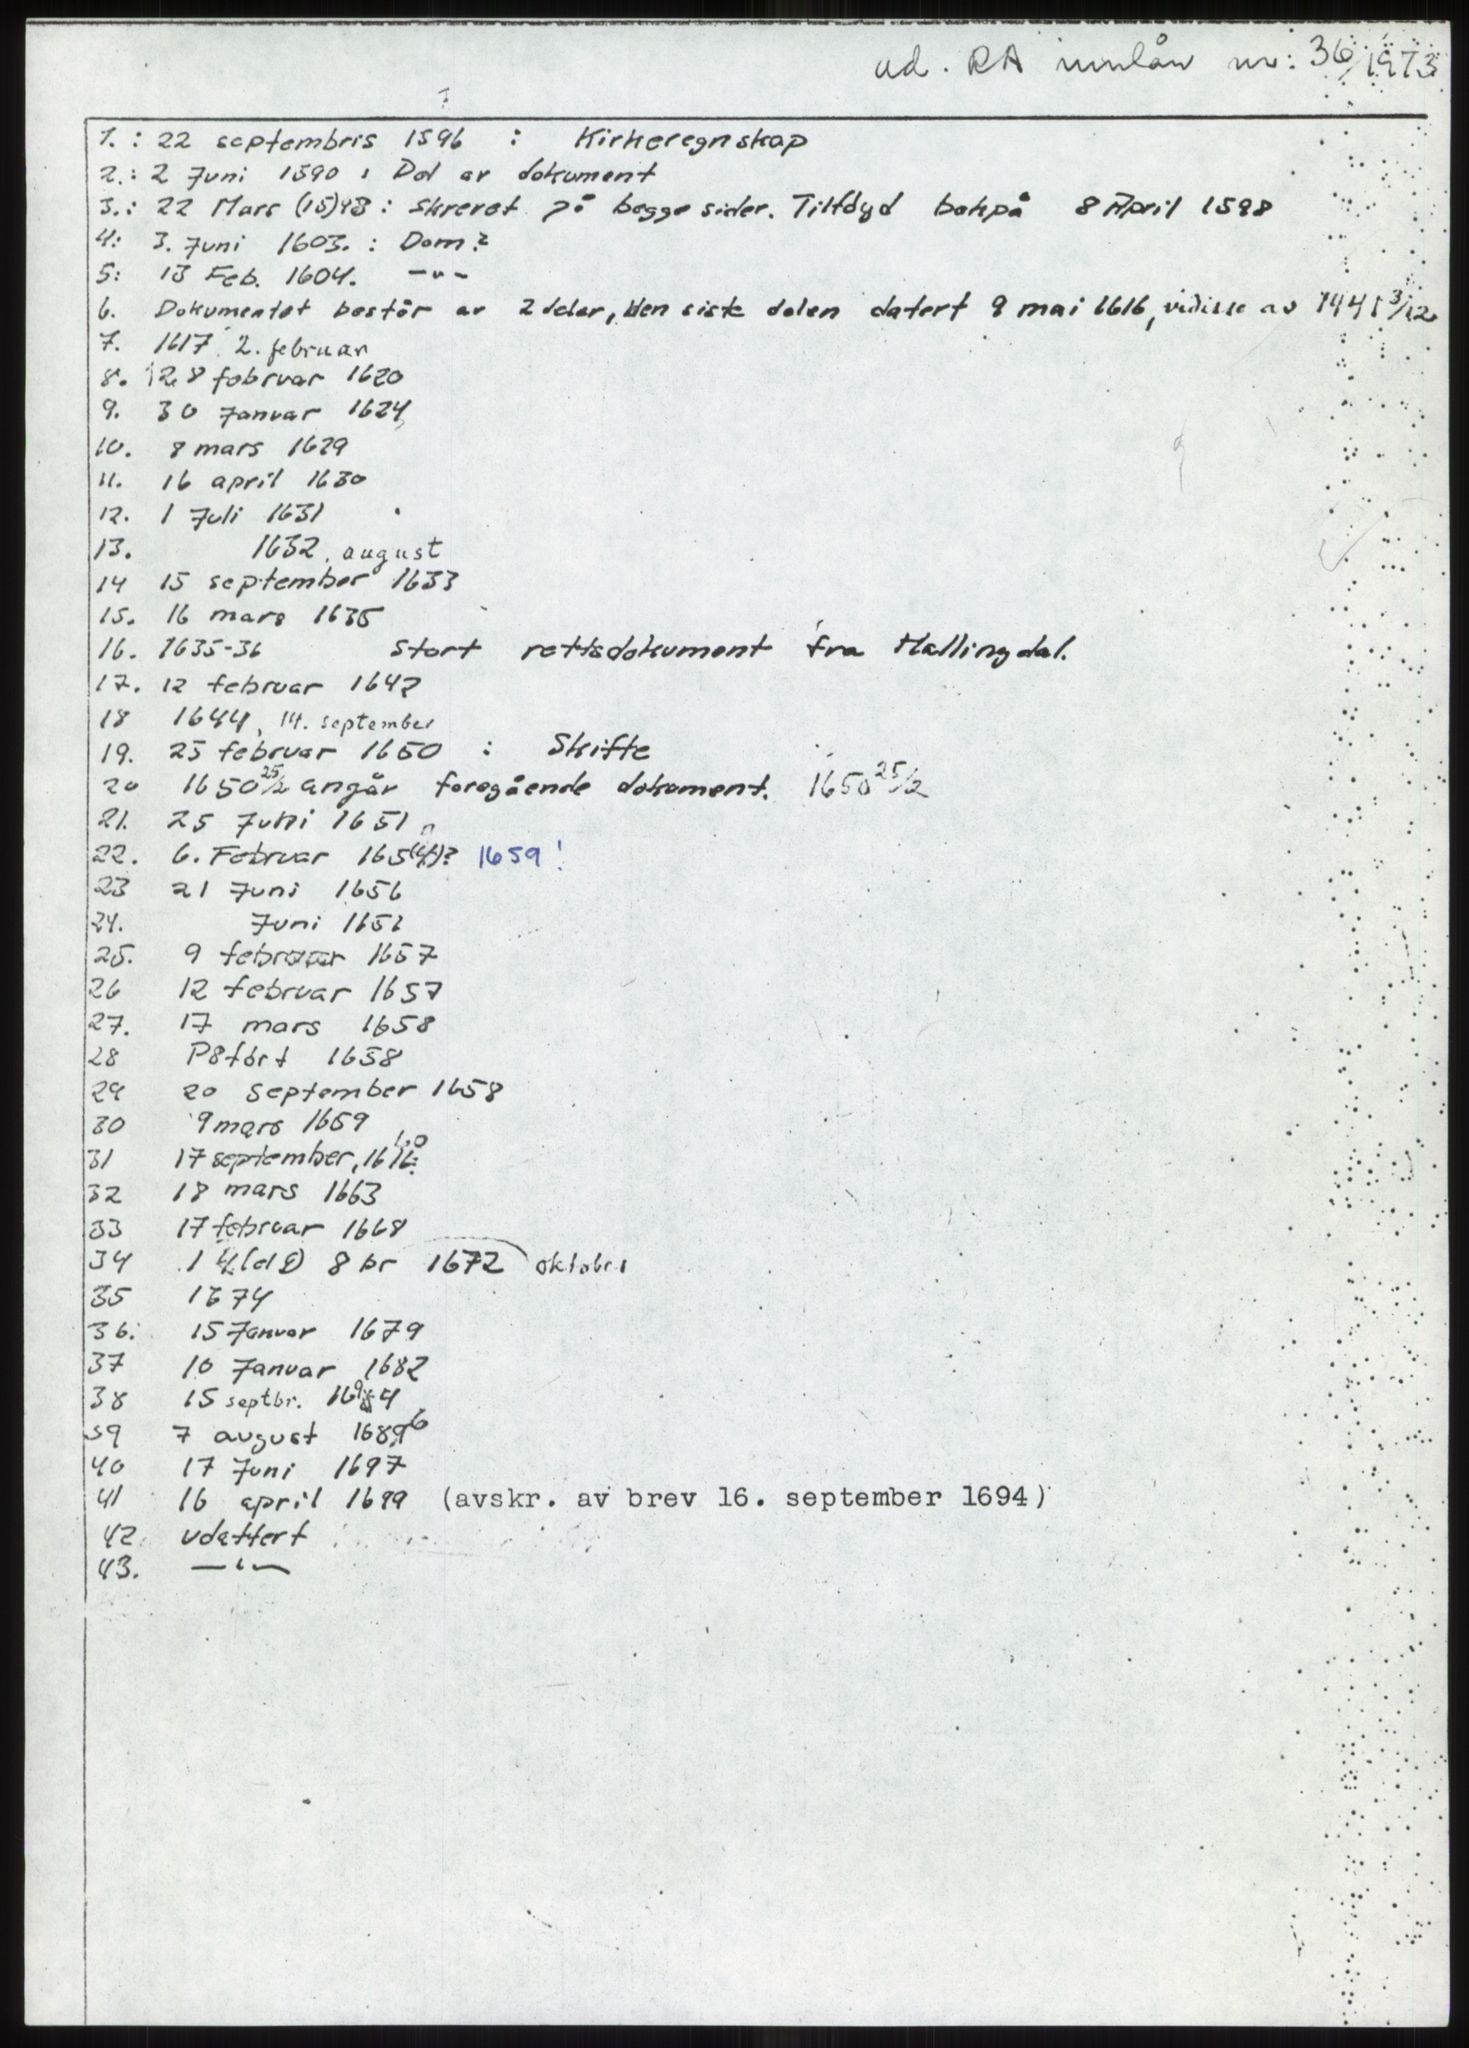 ad. RA innlån nr: 36/1973
1. : 22 septembris 1596 : Kirkeregnskap
2. : 2 Juni 1590 : Del av dokument
3. : 22 Mars (15)93 : skrevet på begge sider. Tilføyd bakpå 8 April 1598
4: 3. Juni 1603. : Dom?
5: 13 Feb. 1604. -"-
6. Dokumentet består av 2 deler, den siste delen datert 9 mai 1616, vidisse av 1441 3/12
7. 1617 2. februar
8. 28 februar 1620
9. 30 Januar 1624
10. 8 mars 1629
11. 16 april 1630
12. 1 Juli 1631
13. 1632, august
14 15 september 1633
15. 16 mars 1635
16. 1635-36 Stort rettsdokument fra Hallingdal.
17. 12 februar 1642
18 1644, 14. september
19. 25 februar 1650 : Skifte
20 1650 25/2 angår foregående dokument. 1650 25/2
21. 25 Juni 1651
22. 6. Februar 165(4)? 1659!
23 21 Juni 1656
24. Juni 1656
25. 9 februar 1657
26 12 februar 1657
27. 17 mars 1658
28 Påført 1658
29 20 september 1658
30 9 mars 1659
31 17 september, 1660
32 18 mars 1663
33 17 februar 1668
34 1 8br 1672 oktober
35 1674
36. 15 Januar 1679
37 10 Januar 1682
38 15 septbr. 1694
39 7 august 1696
40 17 Juni 1697
41 16 april 1699 (avskr. av brev 16. september 1694)
42. udattert
43. -"-